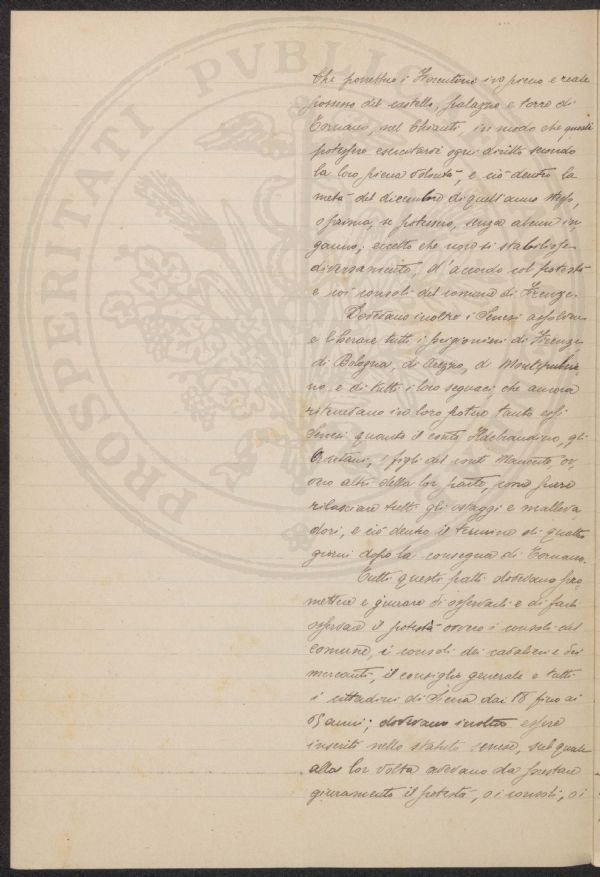 PROSPERITATI PVBLIC
che ponessero i Fiorentini in pieno e reale
possesso del castello, palazzo e torre di
Tornano, nel Chianti, in modo che questi
potessero esercitarvi ogni diritto secondo
la loro piena volontà, e ciò dentro la
metà del dicembre di quell'anno stesso,
o prima, se potessero, senza alcun in-
ganno; eccetto che non si stabilisse
diversamente, d'accordo col potestà
e coi consoli del comune di Firenze.
Dovevano inoltre i Senesi assolvere
e liberare tutti i prigionieri di Firenze
di Bologna, di Arezzo, di Montepulcia-
no, e di tutti i loro seguaci che ancora
ritenevano in loro potere tanto essi
Senesi quanto il conte Ildebrandino, gli
Orvetani, i figli del conte Manente, ov-
vero altri della lor parte, come pure
rilasciare tutti gli ostaggi e malleva-
dori, e ciò dentro il termine di quattro
giorni dopo la consegna di Tornano.
Tutti questi patti dovevano pro-
mettere e giurare di osservarli e di farli
osservare il potestà ovvero i consoli del
comune, i consoli dei cavalieri e dei
mercanti, il consiglio generale e tutti
i cittadini di Siena dai 18 fino ai
anni; dovevano inoltre essere
inseriti nello statuto senese, sul quale
alla lor volta avevano da prestare
giuramento il potestà, o i consoli, o i